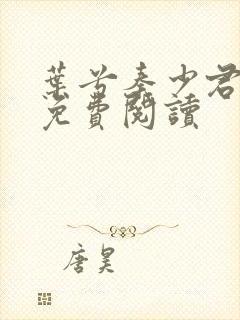 葉苦秦少君
免費閱讀
唐昊